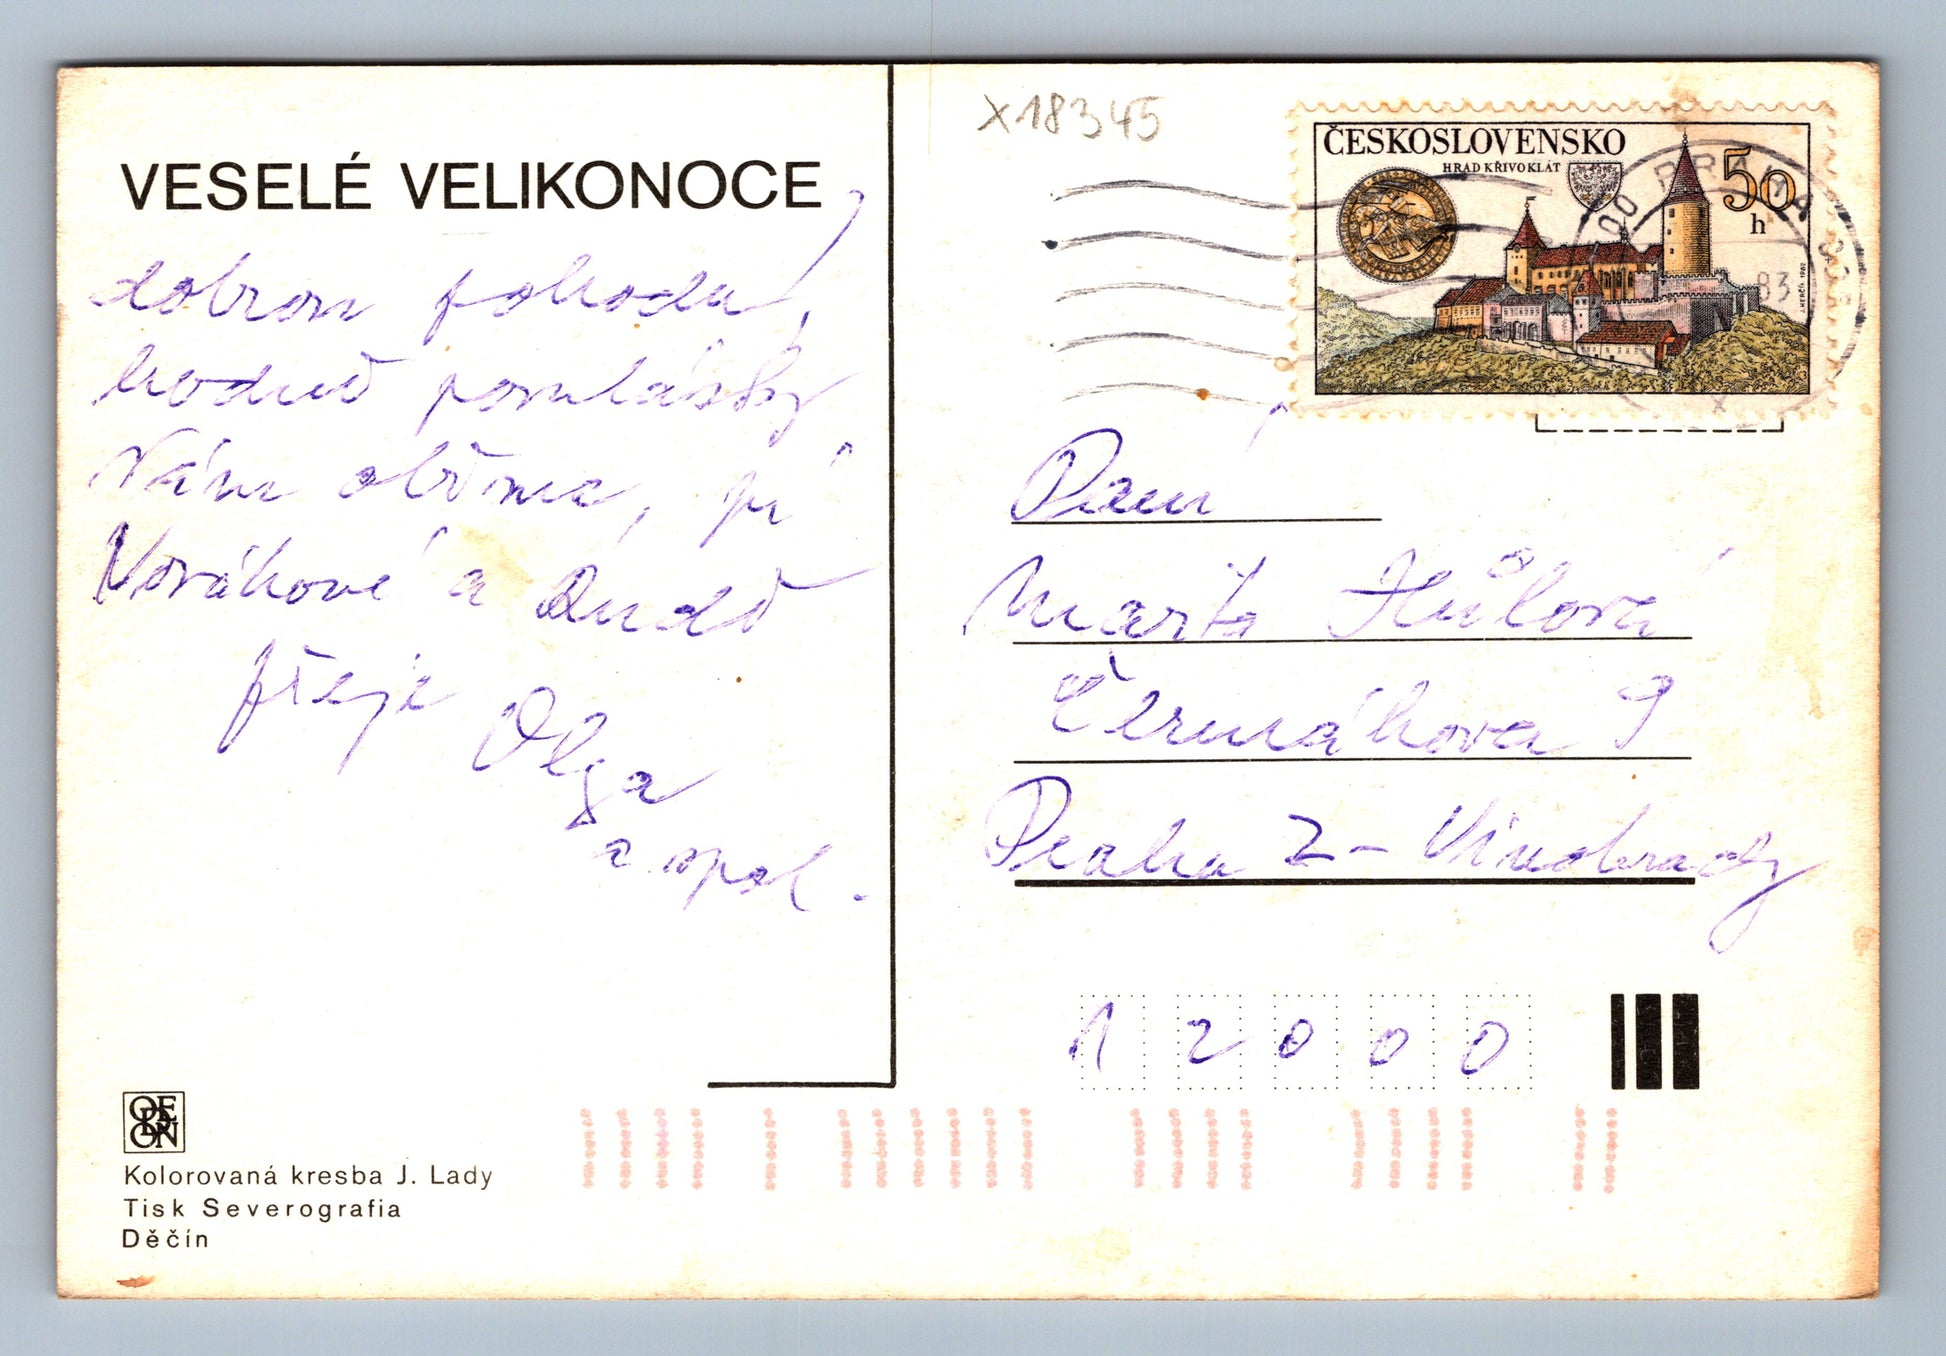 VESELÉ VELIKONOCE,
dobrou pohodu,
hodně pomlázky
Vám oběma, pí
Novákové a
přeje Olga
a spol.
X18345
ČESKOSLOVENSKO
HRAD KŘIVOKLÁT
50
h
83
HERČÍK 1982
Paní
Marta Hůlová
Čermákova 9
Praha 2 - Vinohrady
12000
ODEON
Kolorovaná kresba J. Lady
Tisk Severografia
Děčín